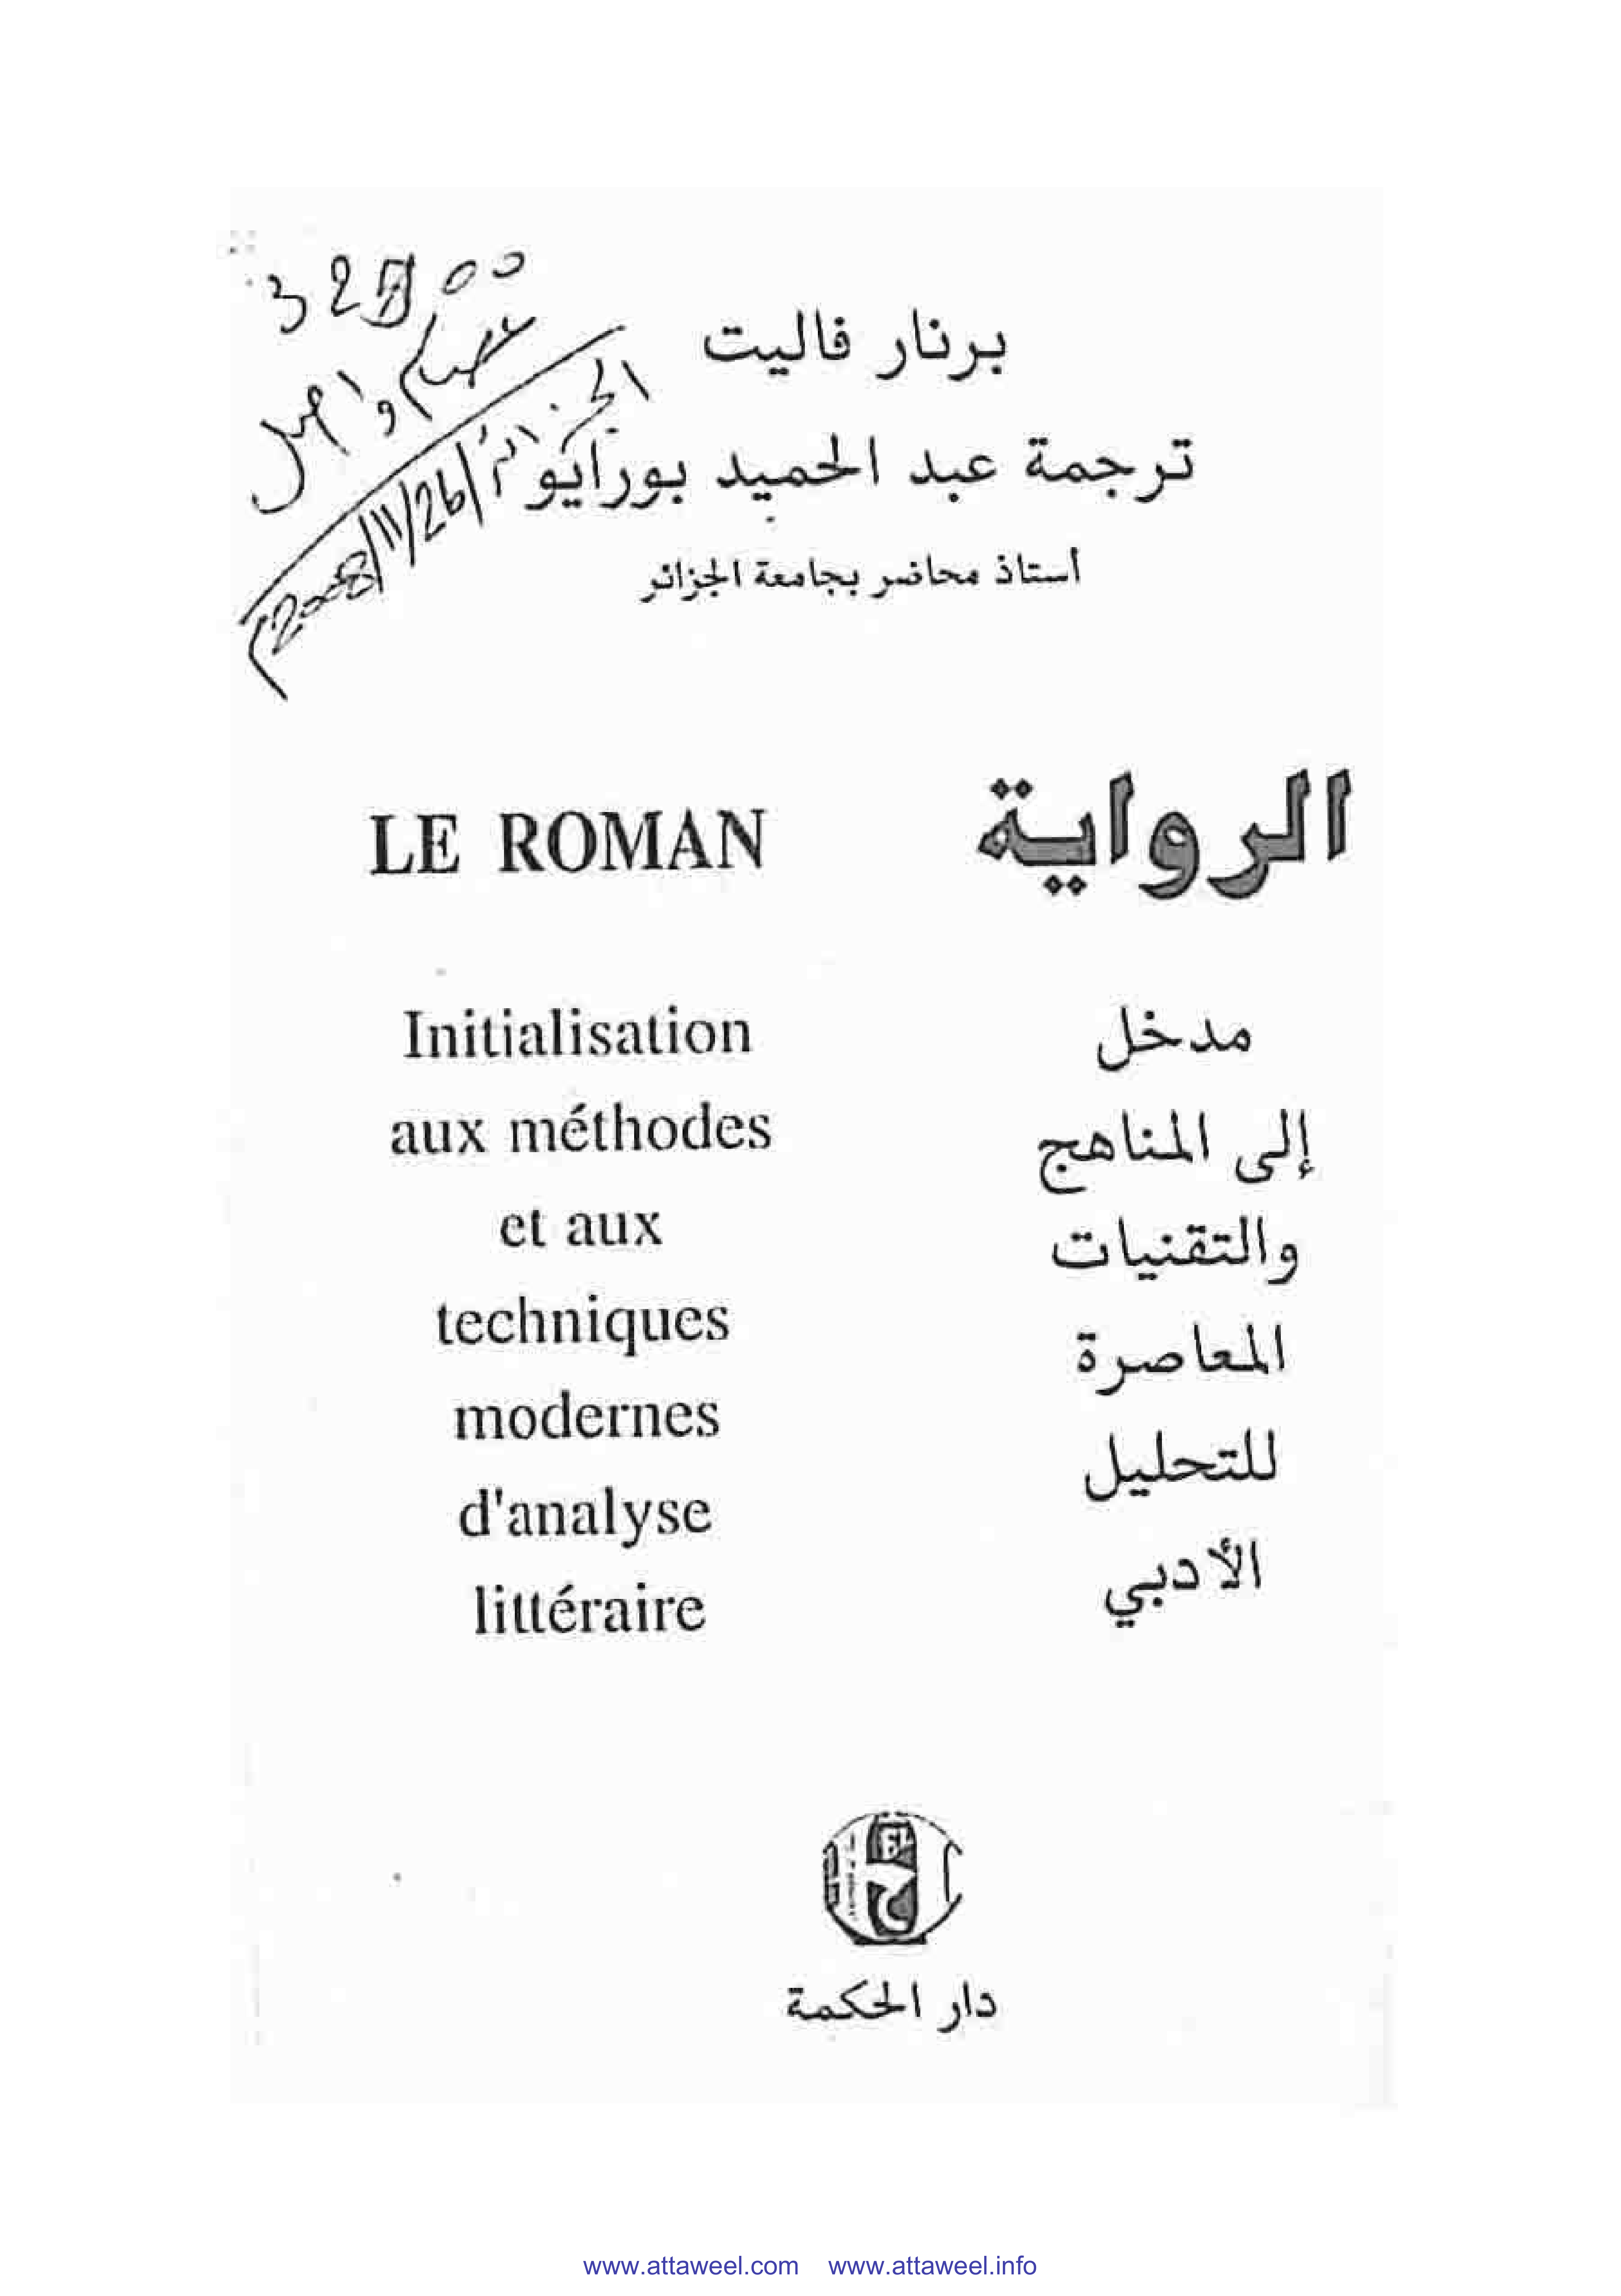 325 00
الجزائر
2008/11/26
برنار فاليت
ترجمة عبد الحميد بورايو
أستاذ محاضر بجامعة الجزائر
الرواية
LE ROMAN
مدخل
إلى المناهج
والتقنيات
المعاصرة
للتحليل
الأدبي
Initialisation
aux méthodes
et aux
techniques
modernes
d'analyse
littéraire
دار الحكمة
www.attaweel.com www.attaweel.info